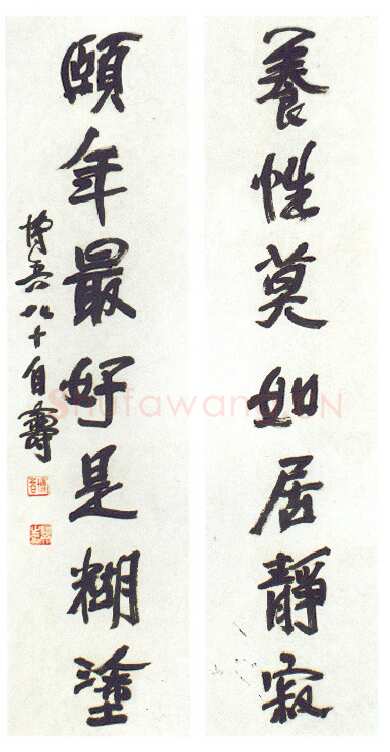 養性莫如居靜寂
頤年最好是糊塗
博吾八十自壽
ShufawangCN